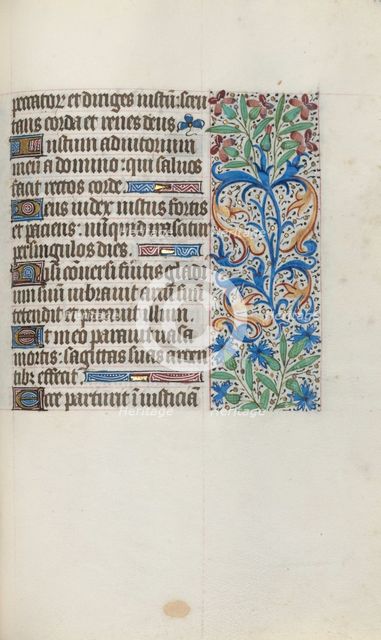 peccator et diriges iustū: scru
tans corda et renes deus
Iustum adiutorium
meū a domino: qui saluos
facit rectos corde.
Deus iudex iustus fortis
et paciens: nūquid irascitur
per singulos dies.
Nisi conuersi fueritis gladi
um suū uibrauit arcum
tetendit et parauit illum.
Et in eo parauit uasa
mortis: sagittas suas arden
tibꝰ effecit
Ecce parturit iniusticiā
Heritage Heritage
Heritage Heritage